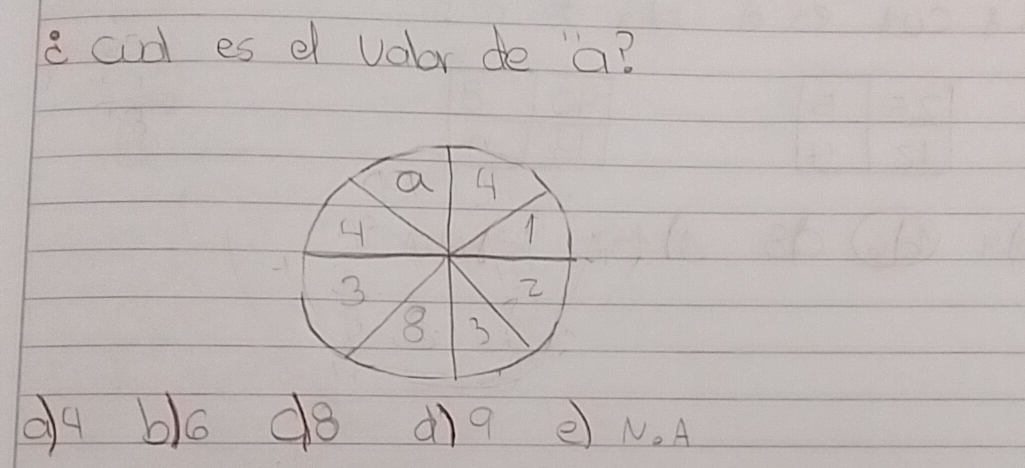 ¿ cúal es el valor de "a?
a 4
4 1
3 2
8 3
a) 4 b) 6 c) 8 d) 9 e) N.A